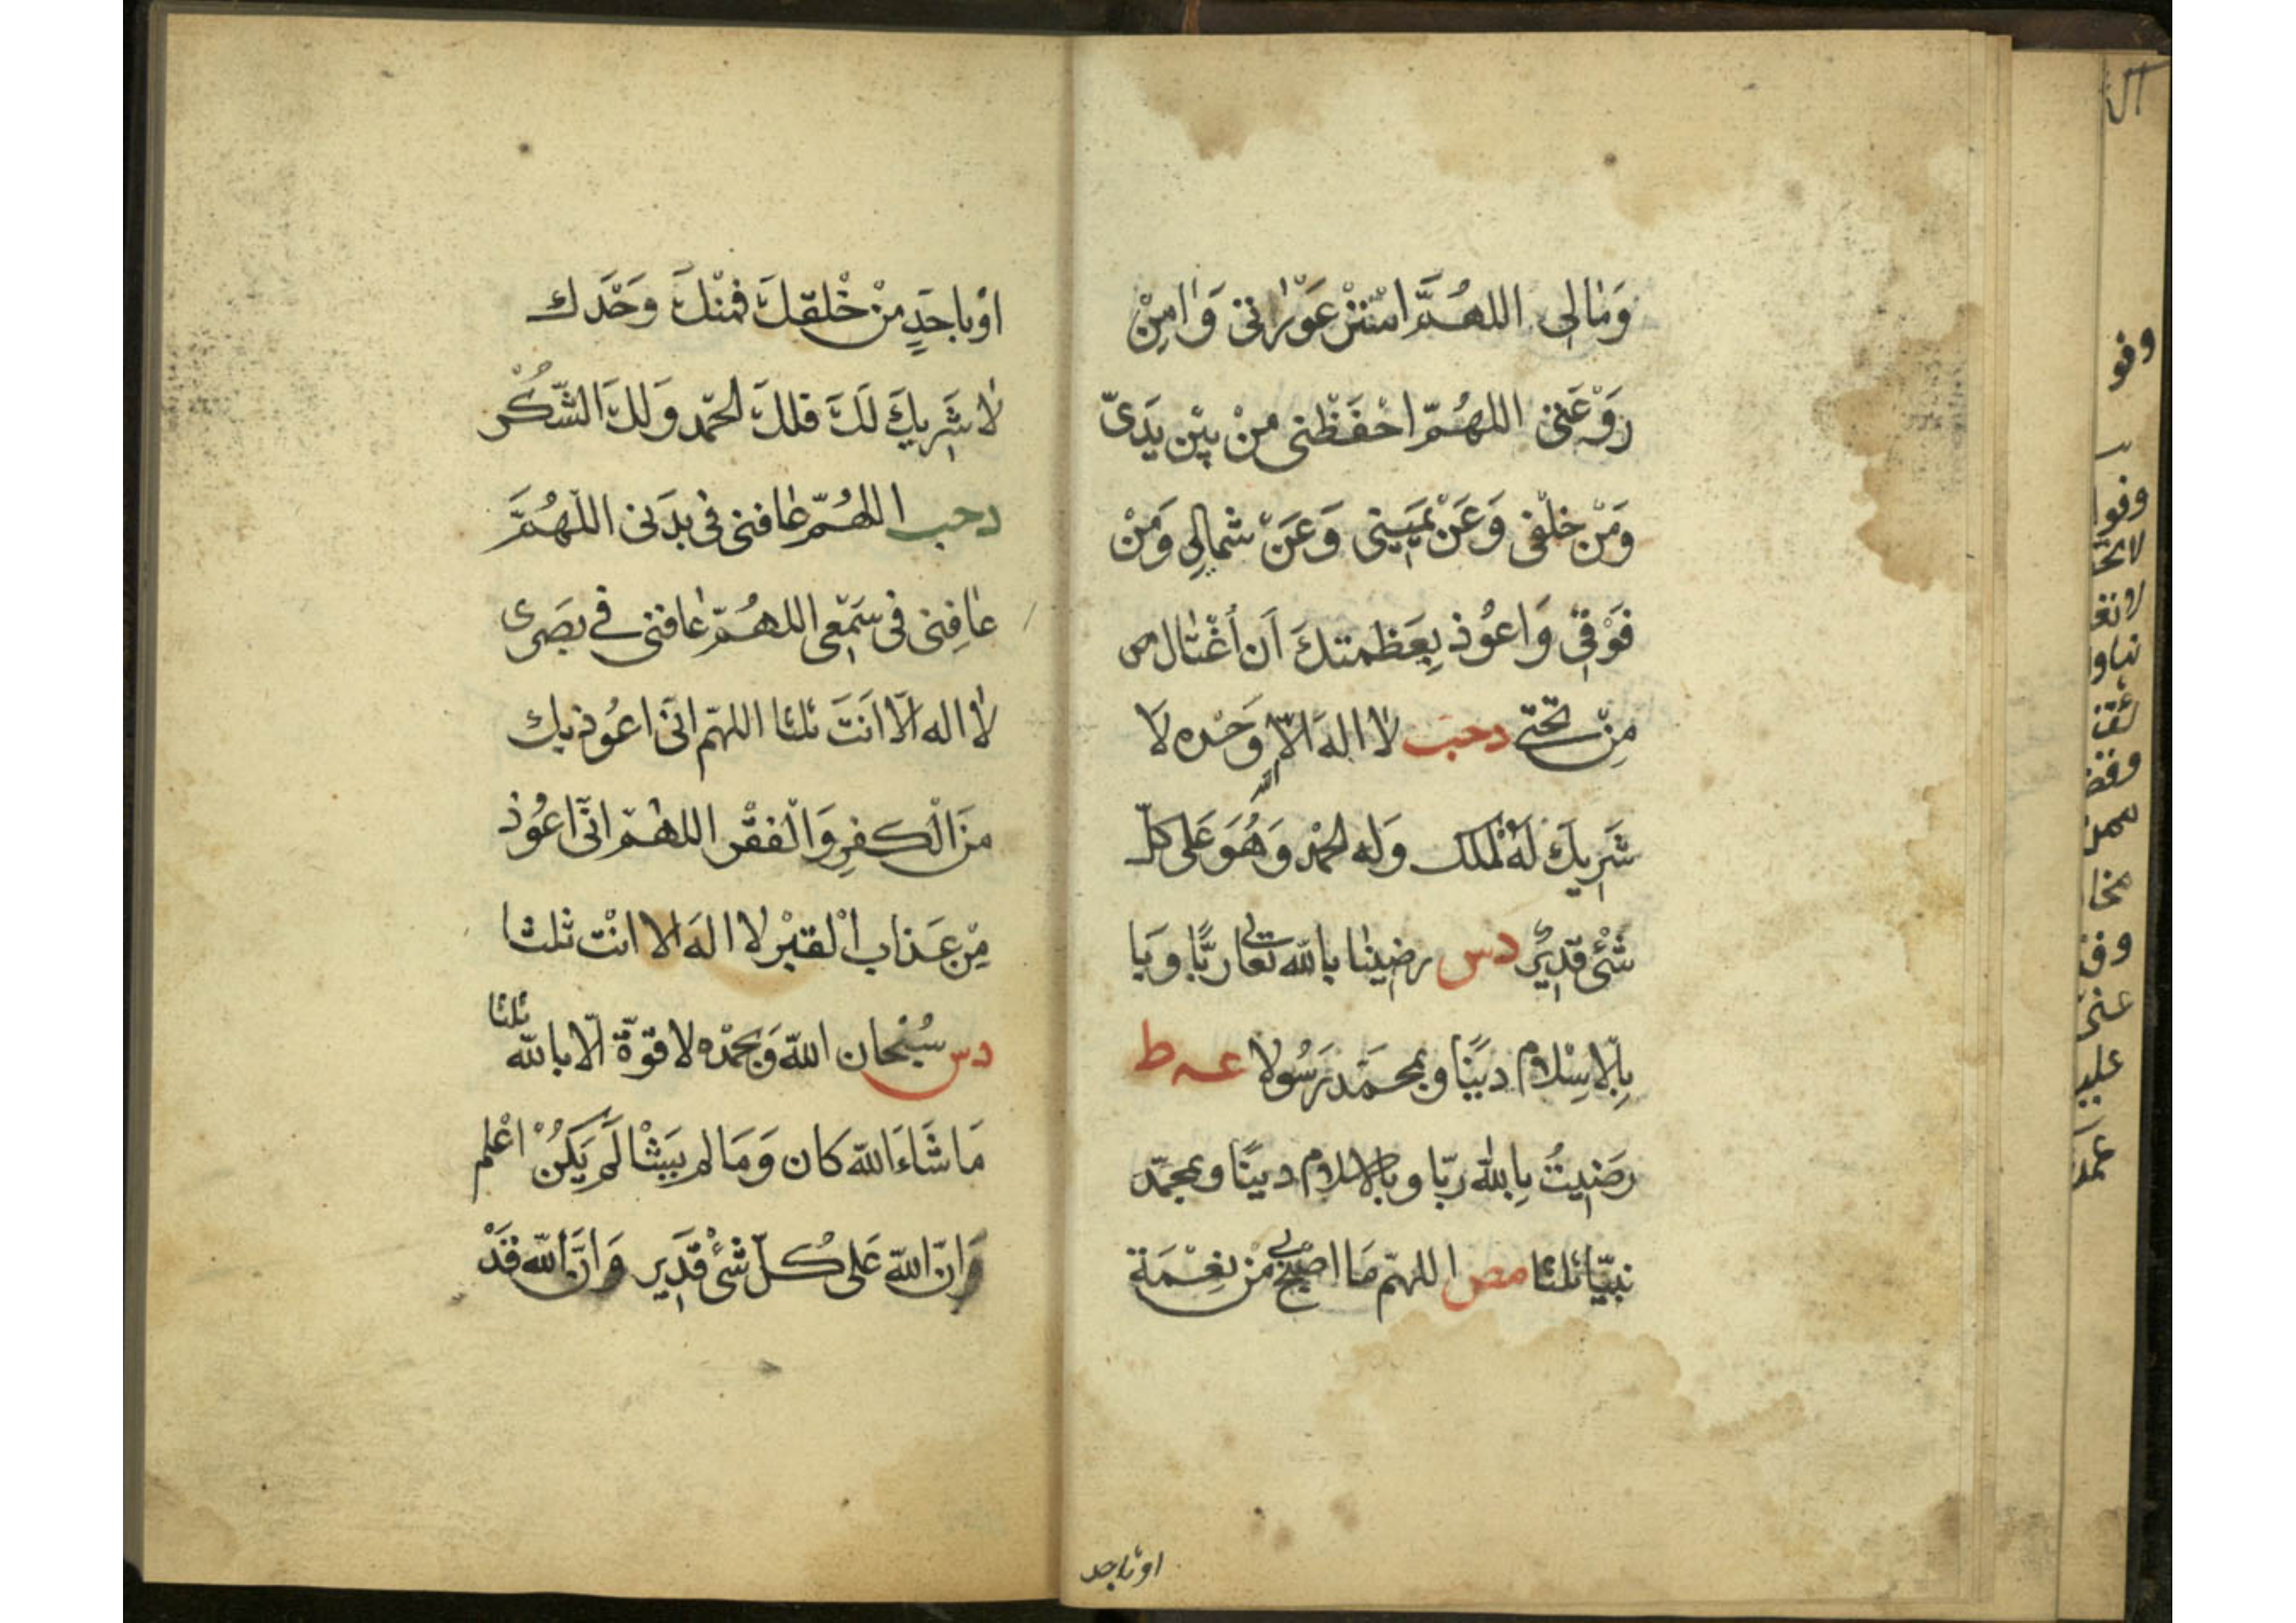 وَمَالِي اللهُمَّ اسْتُرْ عَوْرَاتي وَاٰمِنْ
رَوْعَتي اللهُمّ احْفَظْنى مِنْ بَيْنِ يَدَىّ
وَمَنْ خلْفى وَعَنْ يَمِينى وَعَنْ شمالِى وَمَنْ
فَوْقِى وَاعُوْذ بِعَظمتكَ اَن اُغْتَال
مِنْ تَحْتى دحب لٰا اِلهَ اِلّا الله وَحْده لَا
شَرِيكَ لَهُ الْملك وَله الحَمْد وَهُوَ عَلى كلّ
شَئْ قَدِيرٌ دس رضينٰا بالله تعالى ربًّا وَ با
بِالاسْلام دينًا وبمحمّد رَسُولا عه ط
رضيتُ بِالله ربّا وبالاسلام دينًا وبمحمّد
نبيّا ثلثا مص اللهمّ مَا اصبح بى منْ نِعْمَة
اوباحد
اوْ باحَدٍ منْ خلْقكَ فمنْكَ وَحْدَك
لٰا شَرِيكَ لَكَ فلكَ الحمْد وَلكَ الشّكْر
دحب اللهُمّ عٰافنى فى بدَنى اللهُمَّ
عٰافِنى فى سَمْعى اللهُمّ عٰافنى فى بصَرى
لٰا اله الّا اَنتَ ثلثا اللهمّ انّى اعُوذ بك
منَ الْكفرِ وَالْفقْر اللهُمّ انّى اعُوْذ
مِنْ عَذاب الْقبْر لا الهَ الا انْت ثلثا
دس سُبْحان اللهّ وَبحمْده لا قوّةَ الّا بالله ثلثا
مَا شَاءَ اللهّ كان وَمَا لم يَشَأ لَم يَكنْ اعْلم
وَانّ اللهّ عَلى كُلّ شَئْ قَدِير وَانَّ اللهّ قَدْ